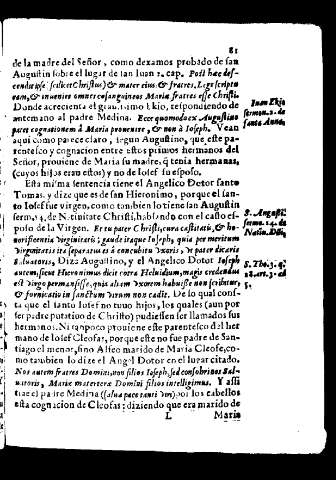 81
de la madre del Señor, como dexamos probado de san
Augustin sobre el lugar de san Iuan 2. cap. Post hæc des-
cendit ipse (scilicet Christus) & mater eius, & fratres. Lege scriptu
ram, & inuenire omnes cosanguineos Mariæ fratres esse Christi.
Donde acrecienta el grauissimo Ekio, respondiendo de
antemano al padre Medina. Ecce quomodo ex Augustino
patet cognationem à Maria prouenire, & non à Ioseph. Vean
aqui como parece claro, segun Augustino, que este pa-
rentesco y cognacion entre estos primos hermanos del
Señor, prouiene de Maria su madre, q̃ tenia hermanas,
(cuyos hijos eran estos) y no de Iosef su esposo.
Esta misma sentencia tiene el Angelico Dotor santo
Tomas, y dize que es de san Hieronimo, porque el san-
to Iosef fue virgen, como tambien lo tiene san Augustin
serm. 14. de Natiuitate Christi, hablando con el casto es-
poso de la Virgen. Et tu pater Christi, cura castitatis, & ho-
norificentia virginitatis; gaude itaque Ioseph, quia per meritum
virginitatis ita separatus es à concubitu vxoris, vt pater dicaris
Saluatoris, Dize Augustino, y el Angelico Dotor Ioseph
autem, sicut Hieronimus dicit contra Heluidium, magis credendus
est virgo permansisse, quia aliam vxorem habuisse non scribitur,
& fornicatio in sanctum virum non cadit. De lo qual cons-
ta que el santo Iosef no tuuo hijos, los quales (aun por
ser padre putatiuo de Christo) pudiessen ser llamados sus
hermanos. Ni tampoco prouiene este parentesco del her
mano de Iosef Cleofas, porque este no fue padre de San-
tiago el menor, sino Alfeo marido de Maria Cleofe, co-
mo tambien lo dize el Angel Dotor en el lugar citado.
Nos autem fratres Domini, non filios Ioseph, sed consobrinos Sal-
uatoris, Mariæ materteræ Domini filios intelligimus. Y assi
trae el padre Medina (salua pace tanti viri) por los cabellos
esta cognacion de Cleofas: diziendo que era marido de
L Maria
Iuan Ekio
sermon. 2. de
santa Anna.
S. Augusti.
serm. 14. de
Natiu. Dñi,
S. Tho. 3. q.
28. art. 3. ad
5.